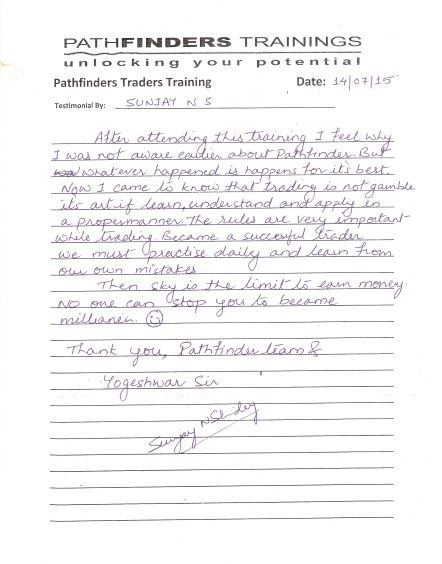 PATHFINDERS TRAININGS
unlocking your potential
Pathfinders Traders Training Date: 14/07/15
Testimonial By: SUNJAY N S
After attending this training I feel why
I was not aware earlier about Pathfinder. But
whatever happened is happens for it's best.
Now I came to know that trading is not gamble
its art if learn, understand and apply in
a proper manner. The rules are very important
while trading. Became a succesful trader
we must practise daily and learn from
our own mistakes
Then sky is the limit to earn money.
No one can stop you to became
millianer.
Thank you, Pathfinder team &
Yogeshwar Sir
Sunjay